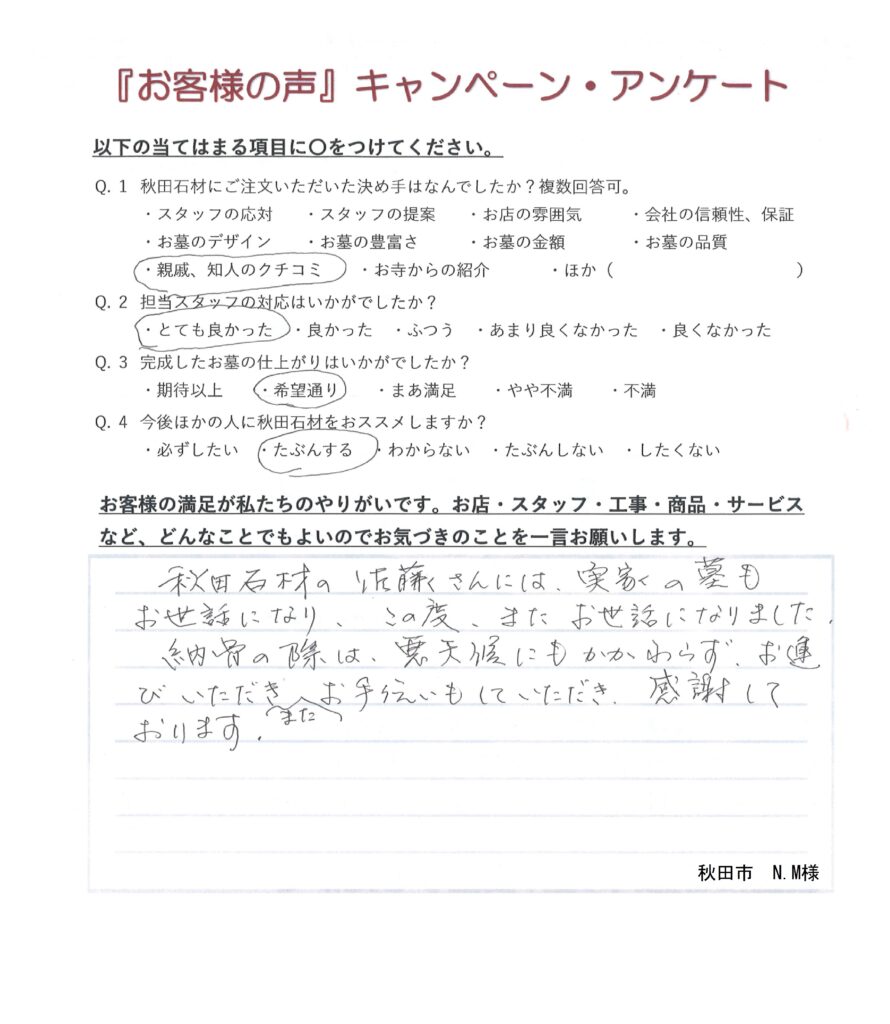 『お客様の声』キャンペーン・アンケート
以下の当てはまる項目に〇をつけてください。
Q. 1 秋田石材にご注文いただいた決め手はなんでしたか？複数回答可。
・スタッフの応対 ・スタッフの提案 ・お店の雰囲気 ・会社の信頼性、保証
・お墓のデザイン ・お墓の豊富さ ・お墓の金額 ・お墓の品質
・親戚、知人のクチコミ ・お寺からの紹介 ・ほか（ ）
Q. 2 担当スタッフの対応はいかがでしたか？
・とても良かった ・良かった ・ふつう ・あまり良くなかった ・良くなかった
Q. 3 完成したお墓の仕上がりはいかがでしたか？
・期待以上 ・希望通り ・まあ満足 ・やや不満 ・不満
Q. 4 今後ほかの人に秋田石材をおススメしますか？
・必ずしたい ・たぶんする ・わからない ・たぶんしない ・したくない
お客様の満足が私たちのやりがいです。お店・スタッフ・工事・商品・サービス
など、どんなことでもよいのでお気づきのことを一言お願いします。
秋田石材の佐藤さんには、実家の墓も
お世話になり、この度、またお世話になりました。
納骨の際は、悪天候にもかかわらず、お運
びいただき、お手伝いもしていただき、感謝して
また
おります。
秋田市 N.M様